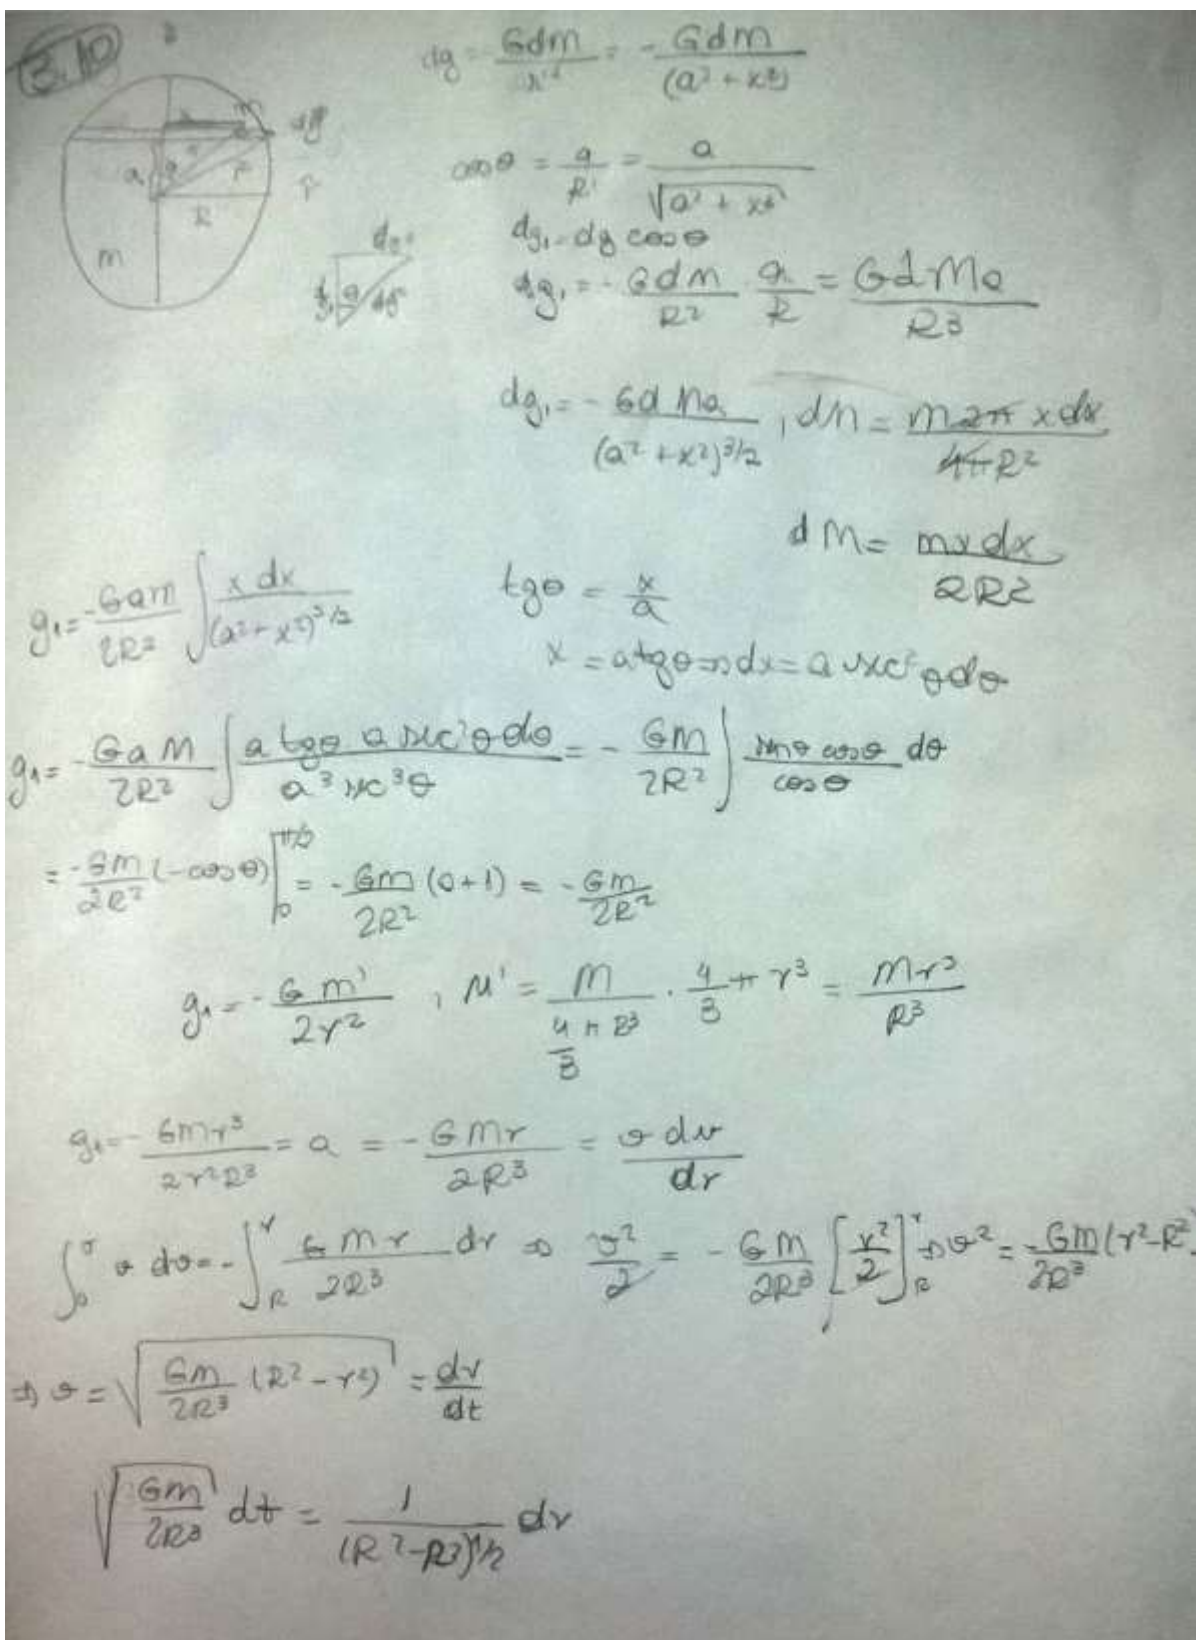 3.10
dg = - GdM/r'² = - GdM/(a² + x²)
cos θ = a/R' = a/√(a² + x²)
dg₁ = dg cos θ
dg₁ = - GdM/R² · a/R = GdMa/R³
a θ R m
dg₁ = - GdMa/(a² + x²)^3/2 , dM = m2π x dx/4πR²
dM = mxdx/2R²
g₁ = - Gam/2R² ∫ x dx/(a² + x²)^3/2
tgθ = x/a
x = atgθ => dx = a sec² θ dθ
g₁ = - GaM/2R² ∫ a tgθ a sec²θ dθ/a³ sec³θ = - GM/2R² ∫ senθ cosθ/cosθ dθ
= - GM/2R² (-cos θ)|₀^π/2 = - GM/2R² (0+1) = - Gm/2R²
g₁ = - G m'/2r² , M' = M/(4/3 π R³) · 4/3 π r³ = Mr³/R³
g₁ = - GMr³/2r²R³ = a = - GMr/2R³ = v dv/dr
∫₀^v v dv = - ∫_R^r GMr/2R³ dr => v²/2 = - GM/2R³ [r²/2]_R^r => v² = - GM/2R³ (r² - R²
=> v = √(GM/2R³ (R² - r²)) = dr/dt
√(GM/2R³) dt = 1/(R² - R²)^1/2 dr